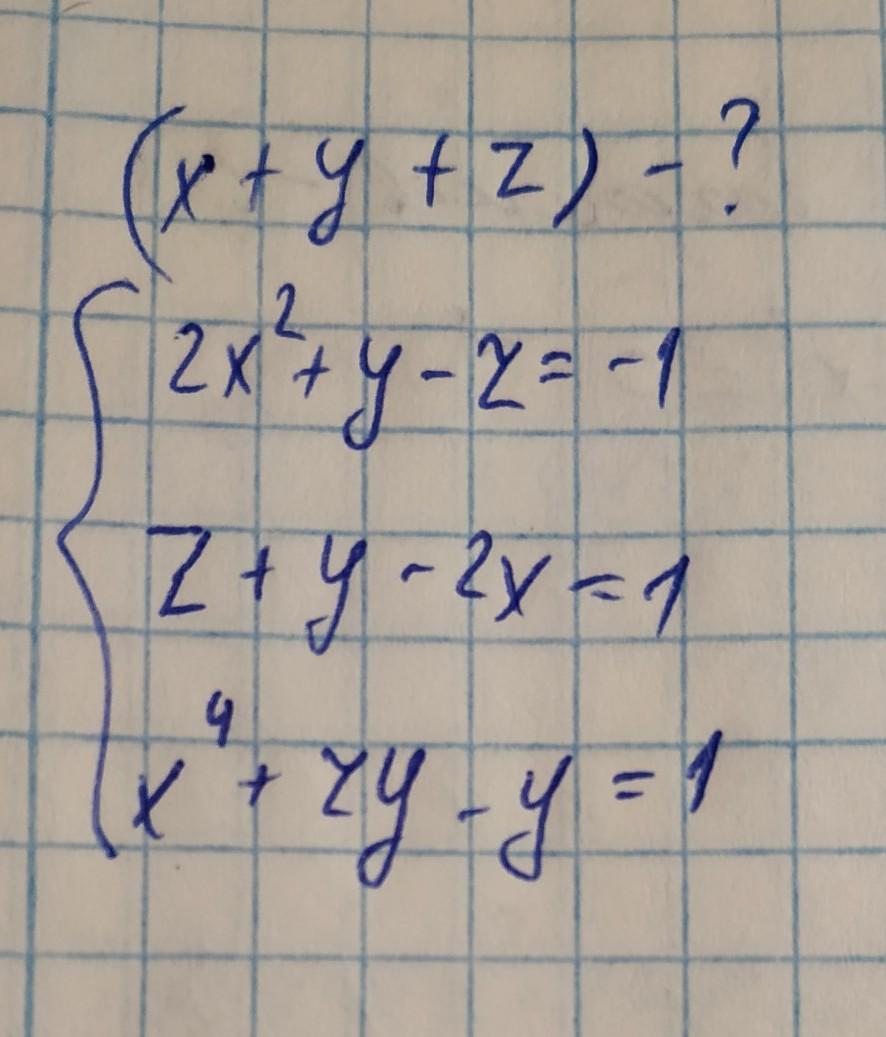 (x + y + z) - ?
2x² + y - z = -1
z + y - 2x = 1
x⁴ + zy - y = 1